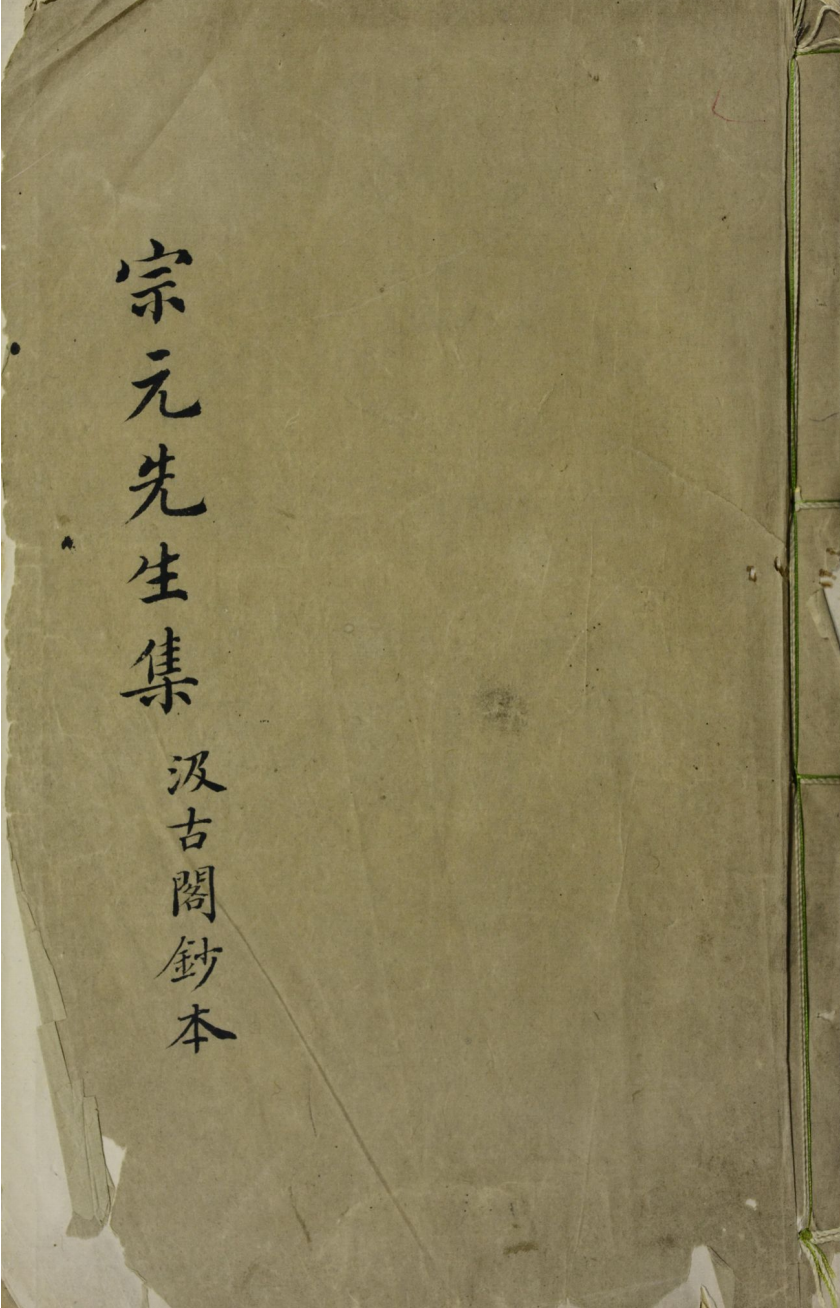 宗元先生集
汲古閣鈔本